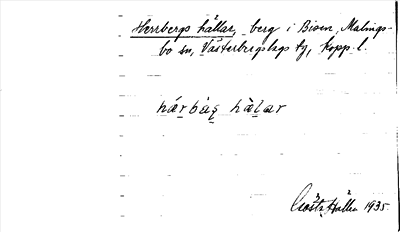 Herrbergs hällar, berg i Bisen, Malings-
bo sn, Västerbergslags tg, Kopp. l.
hǽrbàs hǽlar
Gösta Hallén 1935.